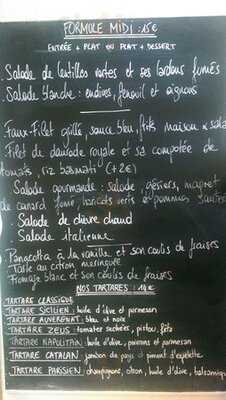 FORMULE MIDI : 15€
ENTRÉE + PLAT OU PLAT + DESSERT
. Salade de lentilles vertes et ses lardons fumés
. Salade blanche : endives, fenouil et oignons
. Faux-Filet grillé, sauce bleu, frites maison & salade
. Filet de daurade royale et sa compotée de
tomates, riz basmati (+2€)
. Salade gourmande : salade, gésiers, magret
de canard fumé, haricots verts et pommes sautées
. Salade de chèvre chaud
. Salade italienne
. Panacotta à la vanille et son coulis de fraises
. Tarte au citron meringuée
. Fromage blanc et son coulis de fraises
NOS TARTARES : 14€
TARTARE CLASSIQUE
TARTARE SICILIEN : huile d'olive et parmesan
TARTARE AUVERGNAT : bleu et noix
TARTARE ZEUS : tomates séchées, pistou, féta
TARTARE NAPOLITAIN : huile d'olive, poivrons et parmesan
TARTARE CATALAN : jambon de pays et piment d'espelette
TARTARE PARISIEN : champignons, citron, huile d'olive, balsamique